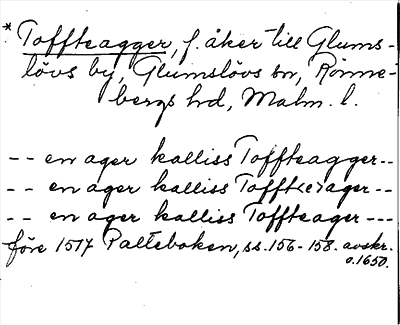 * Tofftεagger, f. åker till Glums-
lövs by, Glumslövs sn, Rönne-
bergs hd, Malm. l.
-- en ager kalliss Tofftεagger--
-- en ager kalliss Tofft<e>ager--
-- en ager kalliss Tofftεager---
före 1517 Palteboken, ss. 156-158. avskr.
o. 1650.